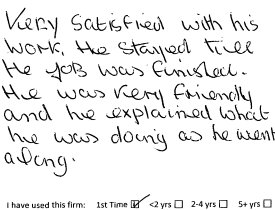 Very satisfied with his
work, He stayed till
He Job was finished.
He was very friendly
and he explained what
he was doing as he went
along.
I have used this firm: 1st Time ☑ <2 yrs ☐ 2-4 yrs ☐ 5+ yrs ☐